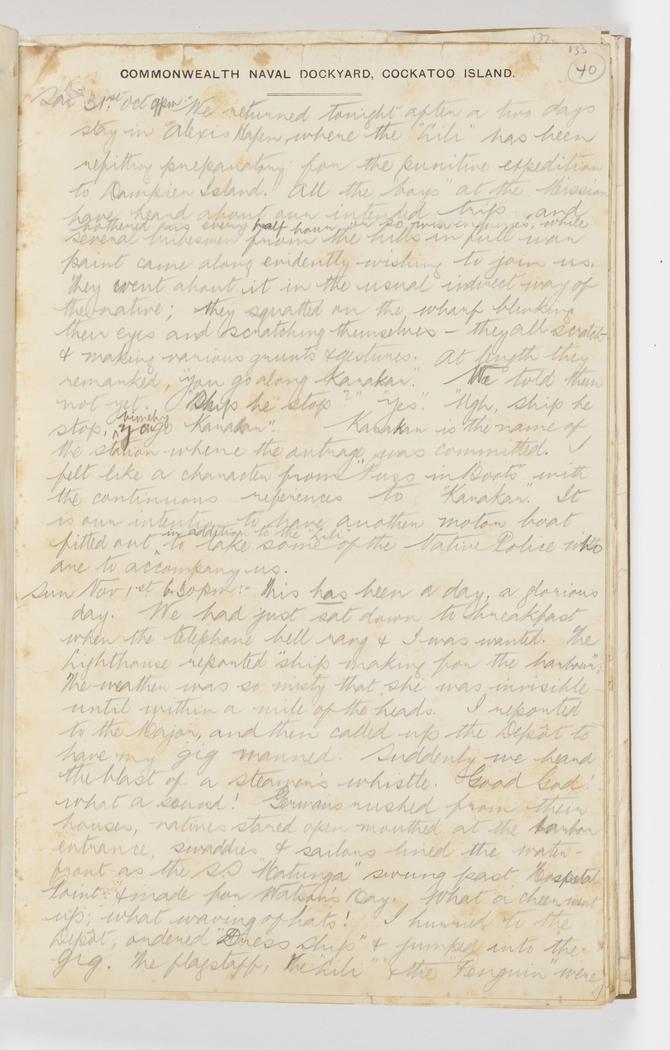 137.
133
40
COMMONWEALTH NAVAL DOCKYARD, COCKATOO ISLAND.
Sat 31st Oct 9pm:- We returned tonight after a two days
stay in Alexis Hafen, where the "Lili" has been
refitting preparatory for the punitive expedition
to Dampier Island. All the boys at the Mission
have heard about our intended trip and
bothered us every half hour or so, with inquiries, while
several tribesmen from the hills in full war
paint came along evidently wishing to join us.
They went about it in the usual indirect way of
the native; they squatted on the wharf blinking
their eyes and scratching themselves – they all scratch
& making various grunts & gestures. At length they
remarked, "You go along Karakar". We told them
not yet. "Ship he stop?" "Yes". "Ugh, ship he
stop, bimeby you go Karakar". Karakar is the name of
the station where the outrage was committed. I
felt like a character from "Puss in Boots" with
the continuous references to "Karakar". It
is our intention to have another motor boat
fitted out in addition to the "Lili" to take some of the Native Police who
are to accompany us.
Sun Nov 1st 6.30pm:- This has been a day, a glorious
day. We had just sat down to breakfast
when the telephone bell rang & I was wanted. The
lighthouse reported "ship making for the harbour".
The weather was so misty that she was invisible
until within a mile of the heads. I reported
to the Major, and then called up the Depôt to
have my gig manned. Suddenly we heard
the blast of a steamer's whistle. Good God!
what a sound! Germans rushed from their
houses, natives stared open mouthed at the harbor
entrance, swaddies & sailors lined the water-
front as the SS "Matunga" swung past Hospital
Point & made for Watson's Bay. What a cheer went
up; what waving of hats! I hurried to the
Depôt, ordered "Dress ship" & jumped into the
gig. The flagstaff, the "Lili" & the "Penguin" were